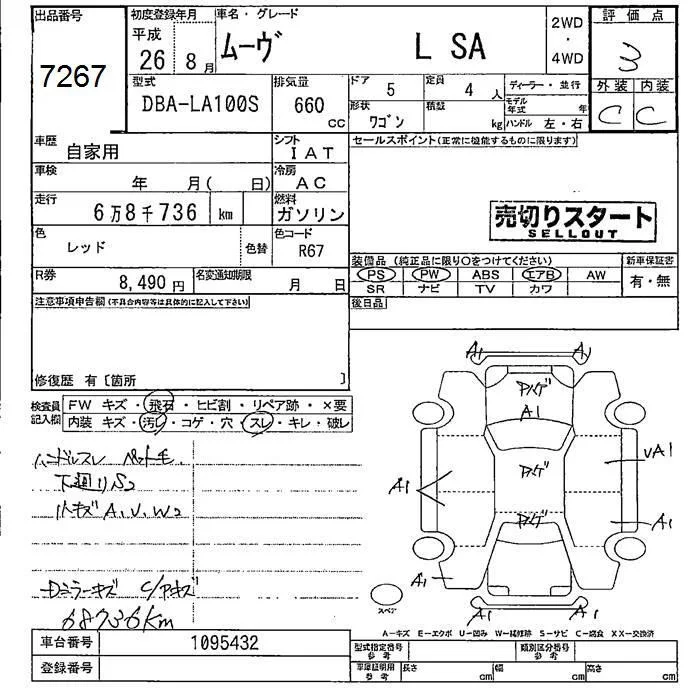 出品番号
7267
初度登録年月
平成
26 8月
車名・グレード
ムーヴ L SA
2WD
・
4WD
評価点
3
外装 内装
C C
型式
DBA-LA100S
排気量
660
CC
ドア
5
定員
4人
ディーラー・並行
形状
ワゴン
積載
kg
モデル年式 年
ハンドル 左・右
車歴
自家用
シフト
IAT
セールスポイント(正常に機能するものに限ります)
車検
年 月( 日)
冷房
AC
走行
6万8千736 km
燃料
ガソリン
売切りスタート
SELLOUT
色
レッド
色替
色コード
R67
装備品(純正品に限り○をつけてください)
PS PW ABS エアB AW
SR ナビ TV カワ
新車保証書
有・無
R券
8,490円
名変通知期限
月 日
後日品
注意事項申告欄(不具合内容等は具体的に記入して下さい)
修復歴 有〔箇所 〕
検査員記入欄
FW キズ・飛石・ヒビ割・リペア跡・×要
内装 キズ・汚レ・コゲ・穴・スレ・キレ・破レ
ハンドルスレ ペット毛
下廻りS2
小キズA,U,W2
ドアミラーキズ
68736Km
A1 A1
アトゲ
A1
アトゲ
アトゲ
UA1
A1
A1
A1
A1 A1
スペア
A-キズ E-エクボ U-凹み W-補修跡 S-サビ C-腐食 XX-交換済
車台番号
1095432
登録番号
型式指定番号
参考
類別区分番号
参考
車庫証明用
参考
長さ cm
幅 cm
高さ cm